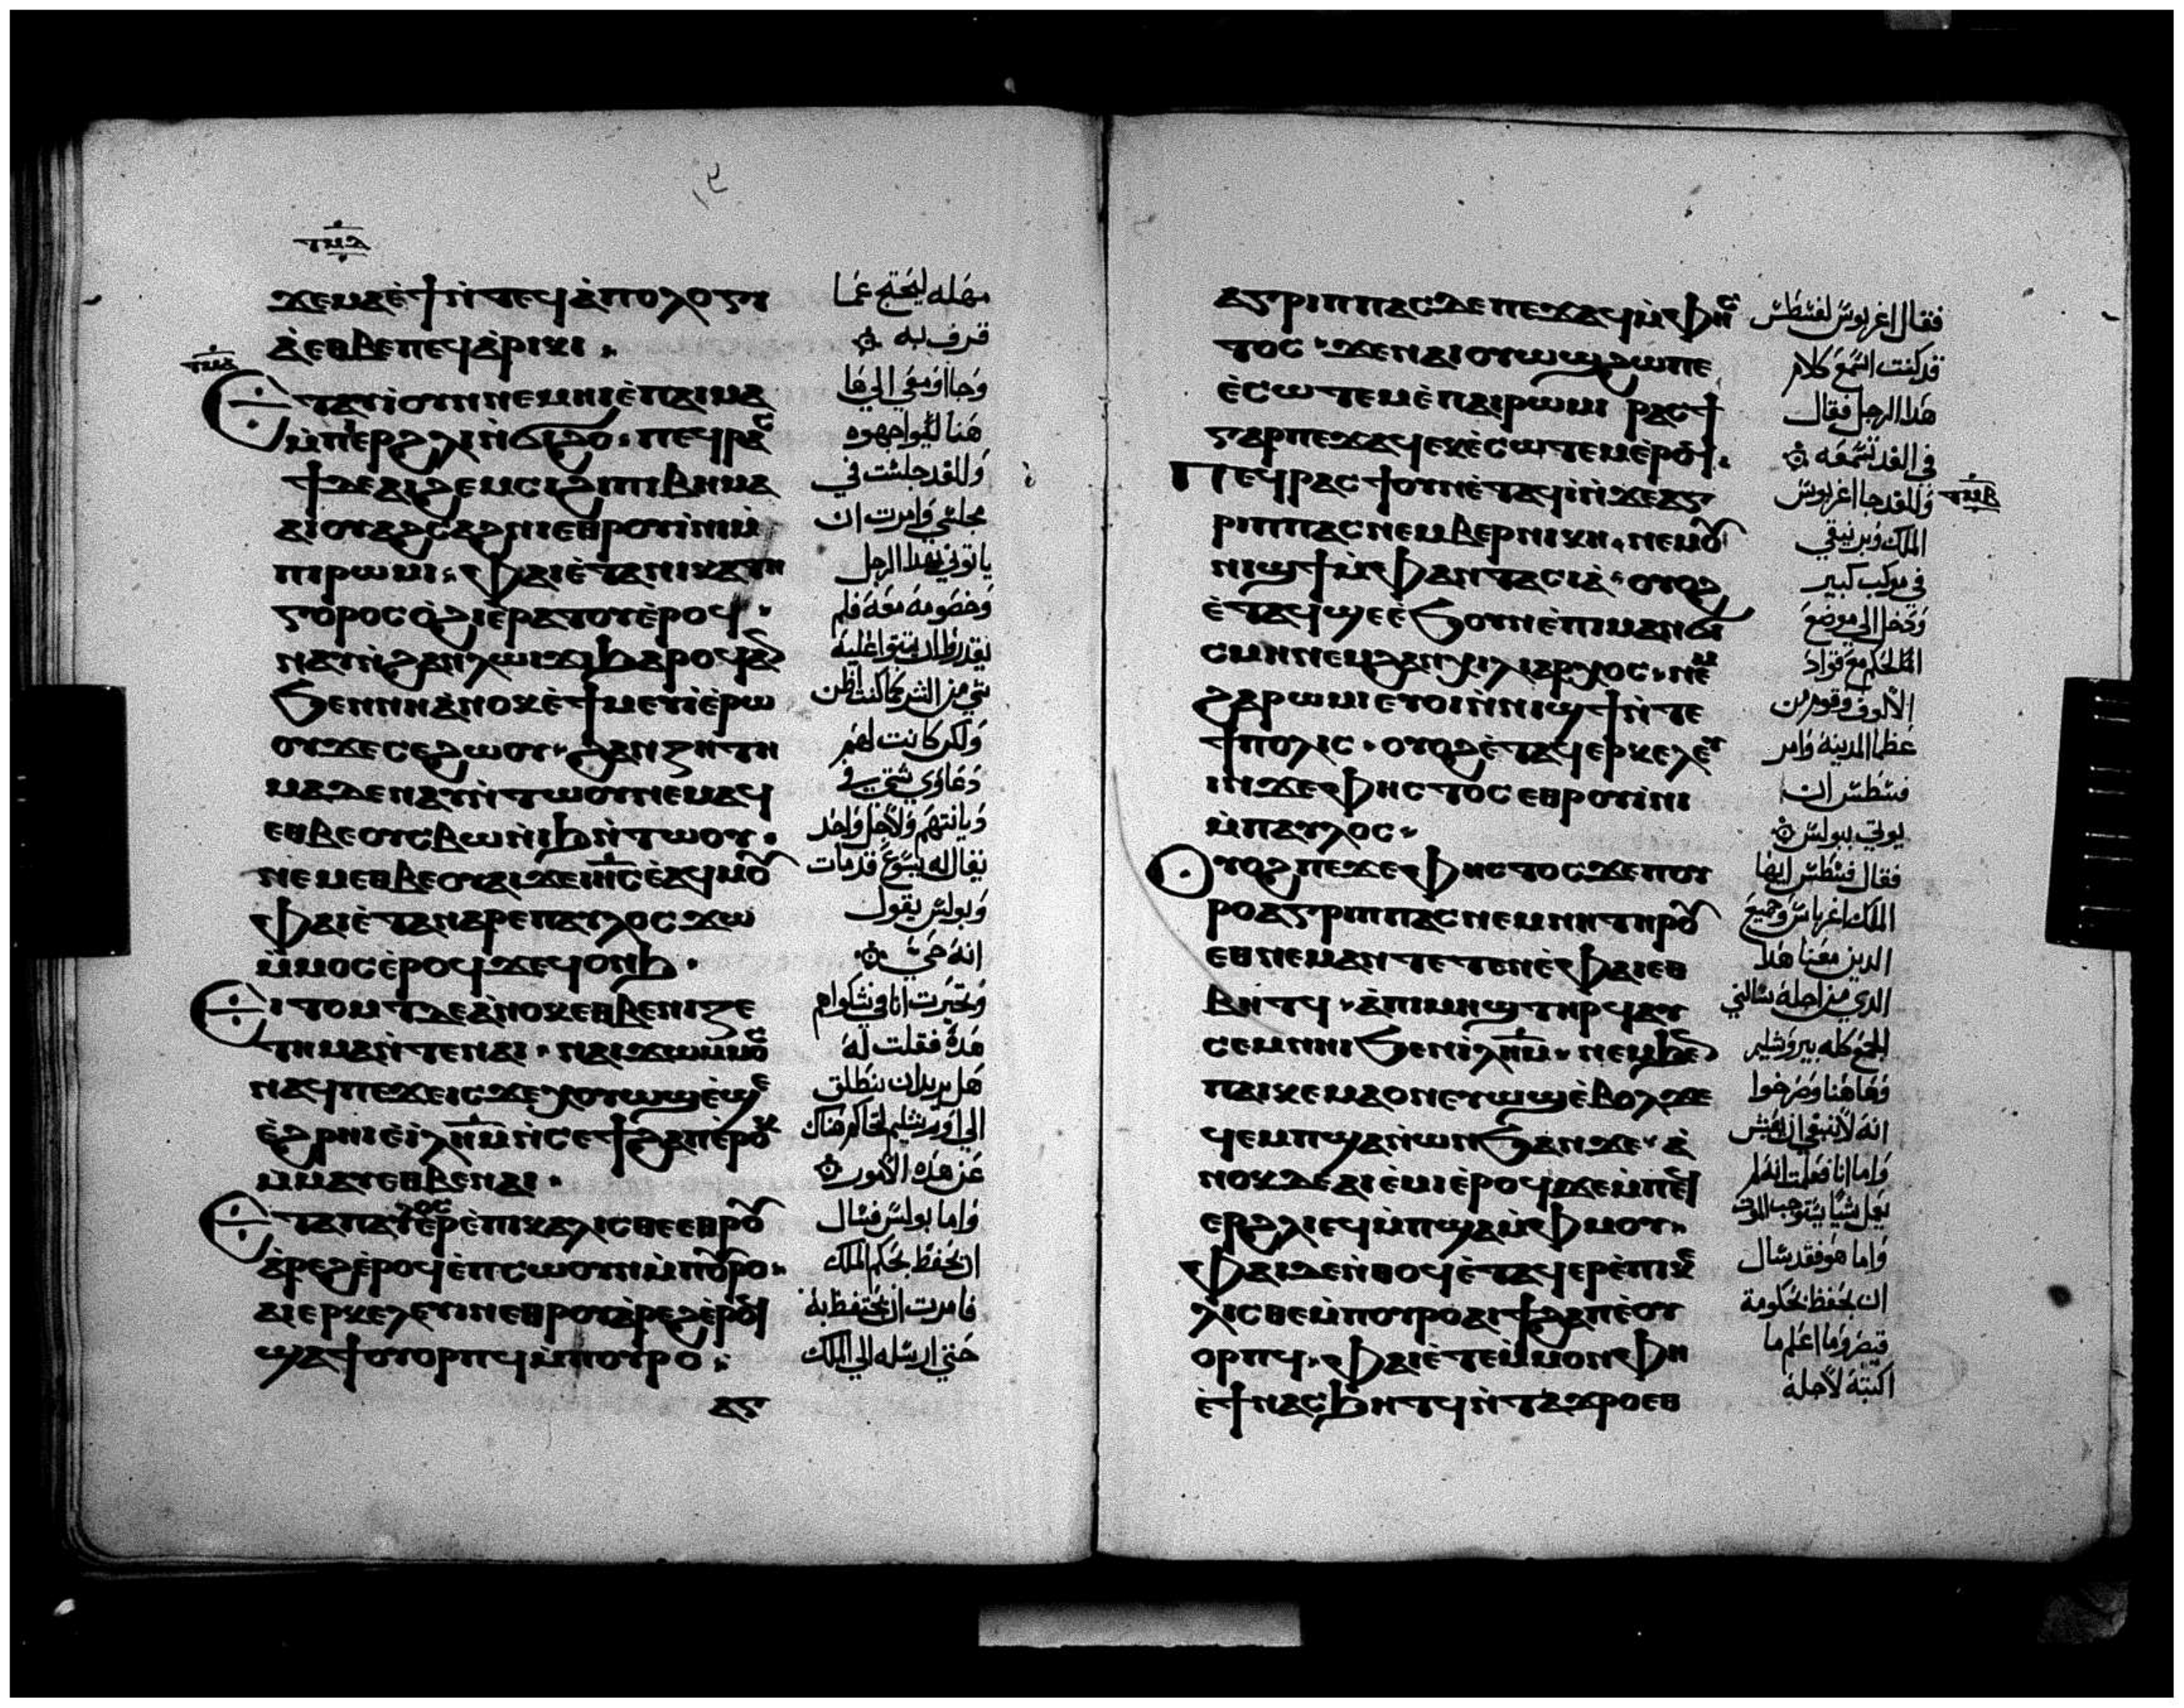 ϫⲉⲙⲁⲉ̀ϯⲛ̀ⲧⲉϥⲁ̀ⲡⲟⲗⲟⲅⲓ
ⲁ̀ⲉⲑⲃⲉⲡⲉϥⲁ̀ⲣⲓⲕⲓ
ⲉⲧⲁⲩⲓ̀ⲟⲩⲛⲛⲉⲙⲏⲓⲉ̀ⲡⲁⲓⲙⲁ
ⲙ̀ⲡⲉⲣϩⲗⲓⲛ̀ϭⲓϩⲟ ⲡⲉϥⲣⲁⲥ
ϯⲇⲉⲁⲓϩⲉⲙⲥⲓϩⲓⲡⲓⲃⲏⲙⲁ
ⲁⲓⲟⲩⲁϩⲥⲁϩⲛⲓⲉⲑⲣⲟⲩⲓ̀ⲛⲓⲙ̀
ⲡⲓⲣⲱⲙⲓ ⲫⲁⲓⲉ̀ⲧⲁⲛⲓⲕⲁⲧⲏ
ⲅⲟⲣⲟⲥⲟ̀ϩⲓⲉ̀ⲣⲁⲧⲟⲩⲉ̀ⲣⲟϥ
ⲛⲁⲩⲓ̀ⲛⲓϩⲁⲛⲗⲱⲓϫⲓϧⲁⲣⲟϥⲁⲛ
ϧⲉⲛⲛⲏⲁ̀ⲛⲟⲕⲉ̀ϯⲙⲉⲩⲓ̀ⲉ̀ⲣⲱ
ⲟⲩϫⲉⲥⲉϩⲱⲟⲩ ϩⲁⲛⲍⲏⲧⲏ
ⲙⲁⲇⲉⲛⲁⲩⲛ̀ⲧⲱⲟⲩⲛⲉⲙⲁϥ
ⲉⲑⲃⲉⲟⲩⲥⲃⲱⲛ̀ⲓϧⲛ̀ⲧⲱⲟⲩ
ⲛⲉⲙⲉⲑⲃⲉⲟⲩⲁⲓϫⲉⲓⲏⲥⲉ̀ⲁϥⲙⲟⲩ
ⲫⲁⲓⲉ̀ⲧⲁⲛⲁⲣⲉⲡⲁⲩⲗⲟⲥϫⲱ
ⲙ̀ⲙⲟⲥⲉ̀ⲣⲟϥϫⲉϥⲟⲛϧ
ⲉⲓⲧⲟⲙⲧⲇⲉⲁ̀ⲛⲟⲕⲉⲑⲃⲉⲛⲓⲍⲉ
ⲧⲏⲙⲁⲛ̀ⲧⲉⲛⲁⲓ ⲛⲁⲓϫⲱⲙⲙⲟⲥ
ⲛⲁϥⲡⲉϫⲉⲓⲥϫⲉⲭⲟⲩⲱϣⲉ̀ϣⲉ
ⲉ̀ϩⲣⲏⲓⲉ̀ⲓⲗⲏⲙⲛ̀ⲥⲉϯϩⲁⲡⲉ̀ⲣⲟⲕ
ⲙ̀ⲙⲁⲩⲉⲑⲃⲉⲛⲁⲓ
ⲉⲧⲁⲡⲁⲩⲗⲟⲥⲉⲣⲉ̀ⲡⲓⲕⲁⲗⲓⲥⲑⲉⲉⲑⲣⲟⲩ
ⲁ̀ⲣⲉϩⲉ̀ⲣⲟϥⲉ̀ⲡⲥⲱⲟⲩⲛⲙ̀ⲡⲟⲩⲣⲟ
ⲁⲓⲉⲣⲕⲉⲗⲉⲩⲓⲛⲉⲑⲣⲟⲩⲁ̀ⲣⲉϩⲉ̀ⲣⲟϥ
ϣⲁϯⲟⲩⲟⲣⲡϥⲙ̀ⲡⲟⲩⲣⲟ
ⲁⲅ
مهله ليحتج عما
قرف به
وجااومعي الي ها
هنا ليواجهوه
وللغد جلست في
مجلسي وامرت ان
ياتوني بهذا الرجل
وخصومه معه فلم
ولكن كانت لهم
دعاوي شتي في
ديانتهم ولاجل واحد
يقال له يسوع قد مات
وبولس يقول
انه حي
هذه فقلت له
هل يريد ان ينطلق
عن هذه الامور
واما بولس فسال
ان يحفظ بحكم الملك
فامرت ان يحتفظ به
حتي ارسله الي الملك
ⲁⲅⲣⲓⲡⲡⲁⲥⲇⲉⲡⲉϫⲁϥⲙ̀ⲫⲏⲥ
ⲧⲟⲥ ϫⲉⲛⲁⲓⲟⲩⲱϣϩⲱⲡⲉ
ⲉ̀ⲥⲱⲧⲉⲙⲉ̀ⲡⲁⲓⲣⲱⲙⲓ ⲣⲁⲥϯ
ⲅⲁⲣⲡⲉϫⲁϥⲉⲕⲉ̀ⲥⲱⲧⲉⲙⲉ̀ⲣⲟϥ
ⲡⲉϥⲣⲁⲥϯⲟⲩⲛⲉ̀ⲧⲁϥⲓ̀ⲛ̀ϫⲉⲁⲅ
ⲣⲓⲡⲡⲁⲥⲛⲉⲙⲃⲉⲣⲛⲓⲕⲏ ⲛⲉⲙⲟⲩ
ⲛⲓϣϯⲙ̀ⲫⲁⲛⲧⲁⲥⲓⲁ̀ ⲟⲩⲟϩ
ⲉ̀ⲧⲁϥϣⲉⲉ̀ϧⲟⲩⲛⲉ̀ⲡⲓⲙⲁⲛϭⲓ
ⲥⲙⲏⲛⲉⲙϩⲁⲛⲭⲓⲗⲓⲁⲣⲭⲟⲥ ⲛⲉⲙ
ϩⲁⲣⲱⲙⲓⲉⲧⲟⲓⲛ̀ⲛⲓϣϯⲛ̀ⲧⲉ
ϯⲡⲟⲗⲓⲥ ⲟⲩⲟϩⲉ̀ⲧⲁϥⲉⲣⲕⲉⲗⲉⲩ
ⲓⲛϫⲉⲫⲏⲥⲧⲟⲥⲉⲑⲣⲟⲩⲓ̀ⲛⲓ
ⲙ̀ⲡⲁⲩⲗⲟⲥ
ⲟⲩⲟϩⲡⲉϫⲉⲫⲏⲥⲧⲟⲥϫⲉⲡⲟⲩ
ⲣⲟⲁⲅⲣⲓⲡⲡⲁⲥⲛⲉⲙⲛⲏⲧⲏⲣⲟⲩ
ⲉⲑⲛⲉⲙⲁⲛⲧⲉⲧⲉⲛⲉ̀ⲫⲁⲓⲉⲑ
ⲃⲏⲧϥ ⲁ̀ⲡⲓⲙⲏϣⲧⲏⲣϥⲁⲩ
ⲥⲉⲙⲛⲏⲓϧⲉⲛⲓ̀ⲗⲏⲙ ⲛⲉⲙϧⲉⲛ
ⲡⲁⲓⲕⲉⲙⲁⲟⲛⲉⲩⲱϣⲉ̀ⲃⲟⲗϫⲉ
ϥⲉⲙⲡϣⲁⲛ̀ⲱⲛϧⲁⲛϫⲉ ⲁ̀
ⲛⲟⲕⲇⲉⲁⲓⲉ̀ⲙⲓⲉ̀ⲣⲟϥϫⲉⲙ̀ⲡⲉϥ
ⲉⲣϩⲗⲓⲉϥⲙ̀ⲡϣⲁⲙ̀ⲫⲙⲟⲩ
ⲫⲁⲓⲇⲉⲛ̀ⲑⲟϥⲉ̀ⲧⲁϥⲉⲣⲉ̀ⲡⲓⲕⲁ
ⲗⲓⲥⲑⲉⲙ̀ⲡⲟⲩⲣⲟⲁⲓϯϩⲁⲡⲉ̀ⲟⲩ
ⲟⲣⲡϥ ⲫⲁⲓⲉ̀ⲧⲉⲙ̀ⲙⲟⲛⲫⲏ
ⲉ̀ϯⲛⲁⲥϧⲏⲧϥⲛ̀ⲧⲁϫⲣⲟⲉⲑ
فقال اغريبوس لفسطس
قد كنت اسمع كلام
هذا الرجل فقال
في الغد تسمعه
وللغد جا اغريبوس
الملك وبرنيقي
في موكب كبير
ودخل الي موضع
الحكم مع قواد
الالوف وقوم من
عظما المدينة وامر
فسطس ان
يوتي ببولس
فقال فسطس ايها
الملك اغرباس وجميع
الذين معنا هذا
الذي من اجله سالني
الجمع كله بيروشليم
وهاهنا وصرخوا
انه لا ينبغي ان يعيش
واما هو فقد سال
ان يحفظ لحكومة
قيصر وما اعلم ما
اكتبه لاجله